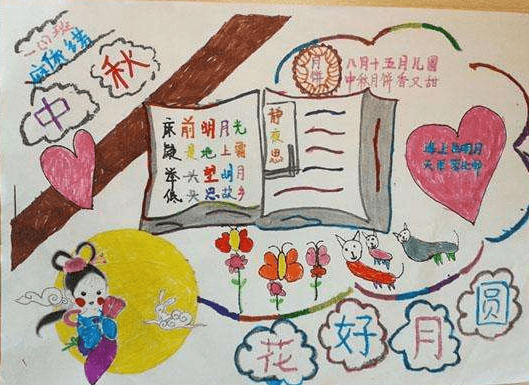 中秋
月饼
八月十五月儿圆
中秋月饼香又甜
静夜思
床前明月光
疑是地上霜
举头望明月
低头思故乡
海上生明月
花好月圆